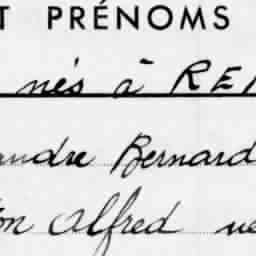 T PRÉNOMS
nés à REI
andre Bernard
on Alfred ne